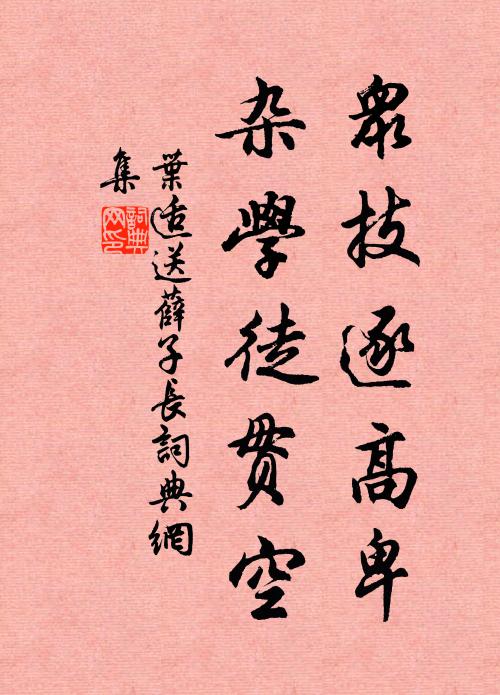 眾技逐高卑
杂學徒贯空
葉适送薛子長詞典網
集
詞典
网印